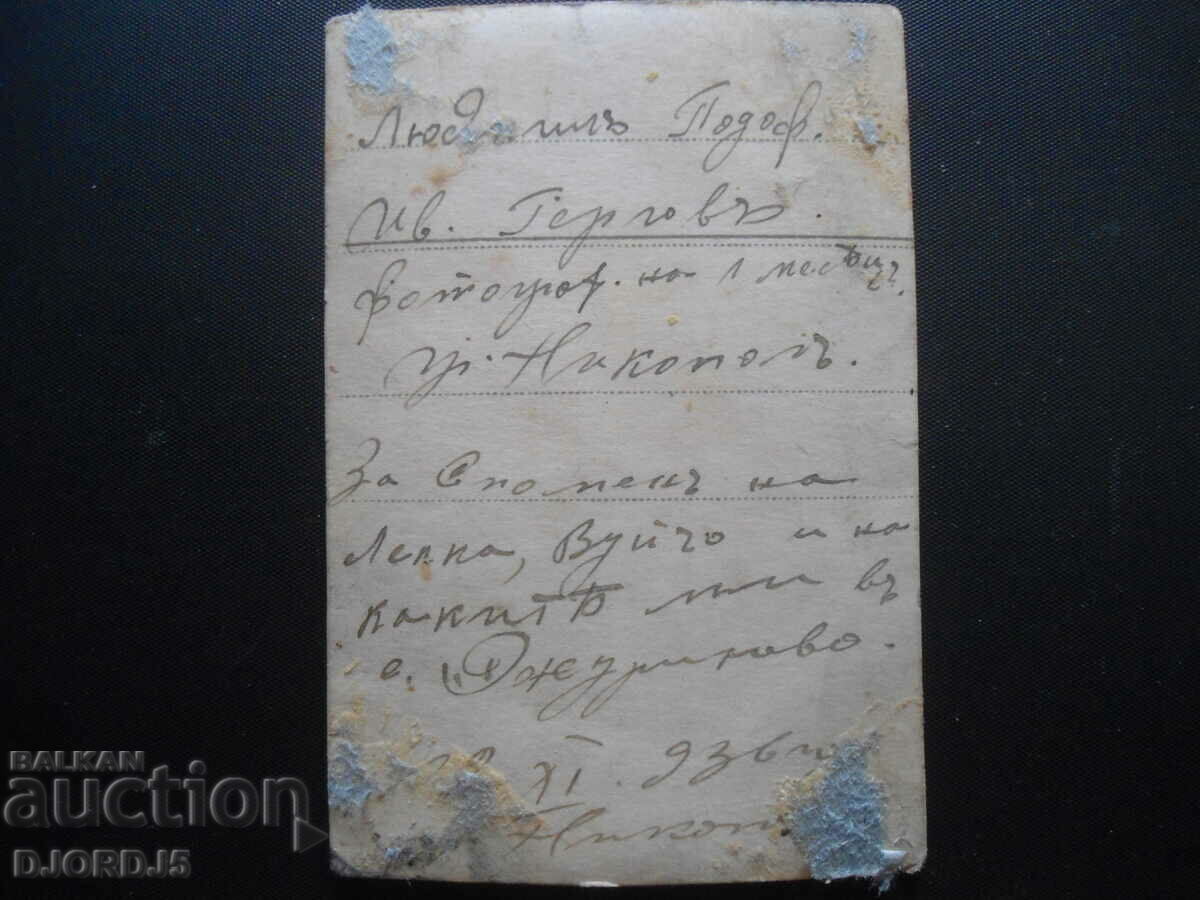 Людмилъ Тодоф.
Ив. Герговъ.
фотограф. на 1 месецъ.
гр. Никополъ.
За Споменъ на
Лелка, Вуйчо и на
какитѣ ми въ
с. „Джурилово.
XI.
Никопол
BALKAN
auction
DJORDJ5